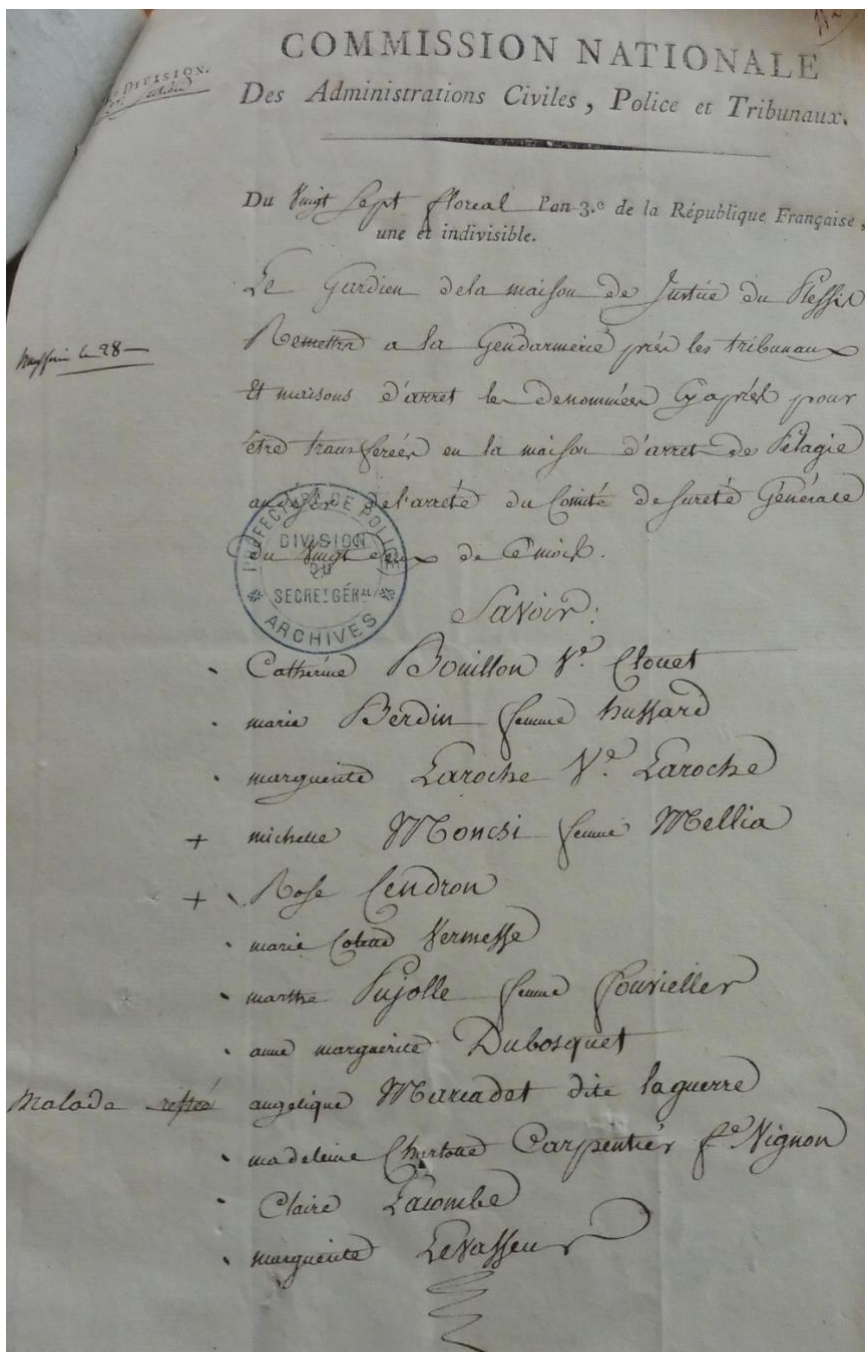 COMMISSION NATIONALE
DIVISION.
Des Administrations Civiles, Police et Tribunaux.
Du Vingt Sept floreal l'an 3.e de la République Française,
une et indivisible.
Le Gardien dela maison de Justice du Plessis
Remettra a la Gendarmerie près les tribunaux
Et maisons d'arret les denommées Cy après pour
être transferées en la maison d'arret de Pelagie
de l'arreté du Comité de sureté Générale
du Vingt deux de Ce mois.
PREFECTURE DE POLICE
DIVISION
DU
SECRET. GÉRAL
ARCHIVES
Savoir:
Catherine Bouillon Ve. Clouet
marie Berdin femme hussard
marguerite Laroche Ve. Laroche
+ michelle Moncsi femme Mellia
+ Rose Cendron
marie Vermesse
marthe Pujolle femme fouvieller
anne marguerite Dubosquet
Malade restée angelique Mariadet dite laguerre
madeleine Charlotte Carpentier fe. Vignon
Claire Lacombe
marguerite LeVasseur